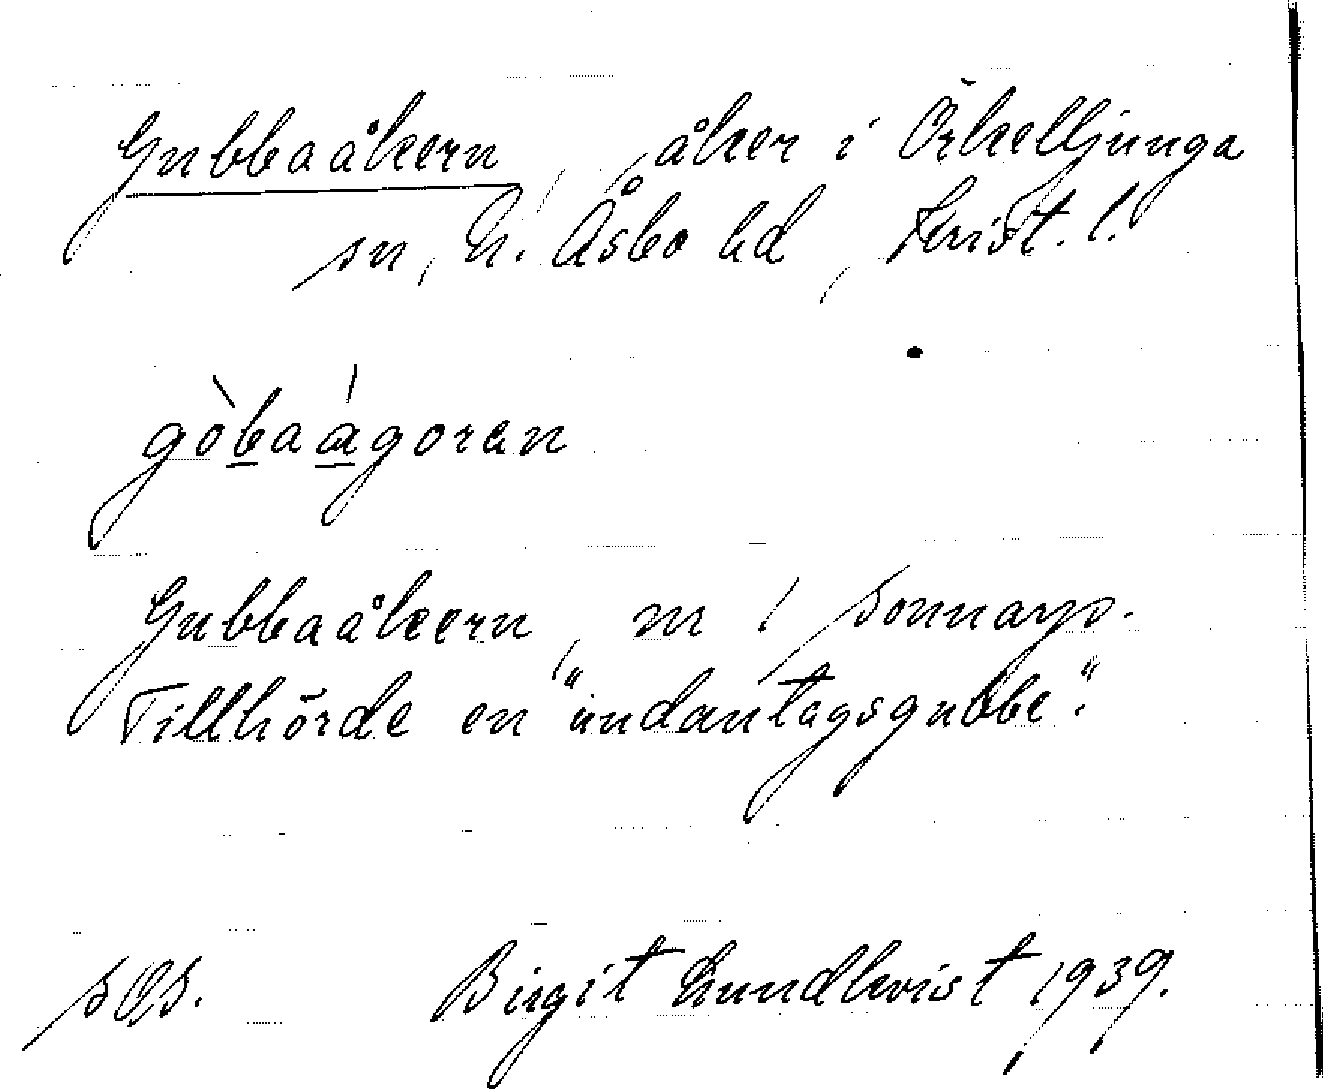 Gubbaåkern, åker i Örkelljunga
sn, N. Åsbo hd, Krist. l.
gòbaágoren
Gubbaåkern, nr 1 Sonnarp.
Tillhörde en "undantagsgubbe".
SOS. Birgit Lundkvist 1939.